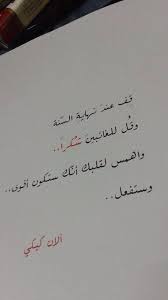 قف عند نهاية السنة
وقُل للغائبينَ شكراً..
واهمس لقلبك أنّك ستكون أقوى..
وستفعل..
آلان كيكي